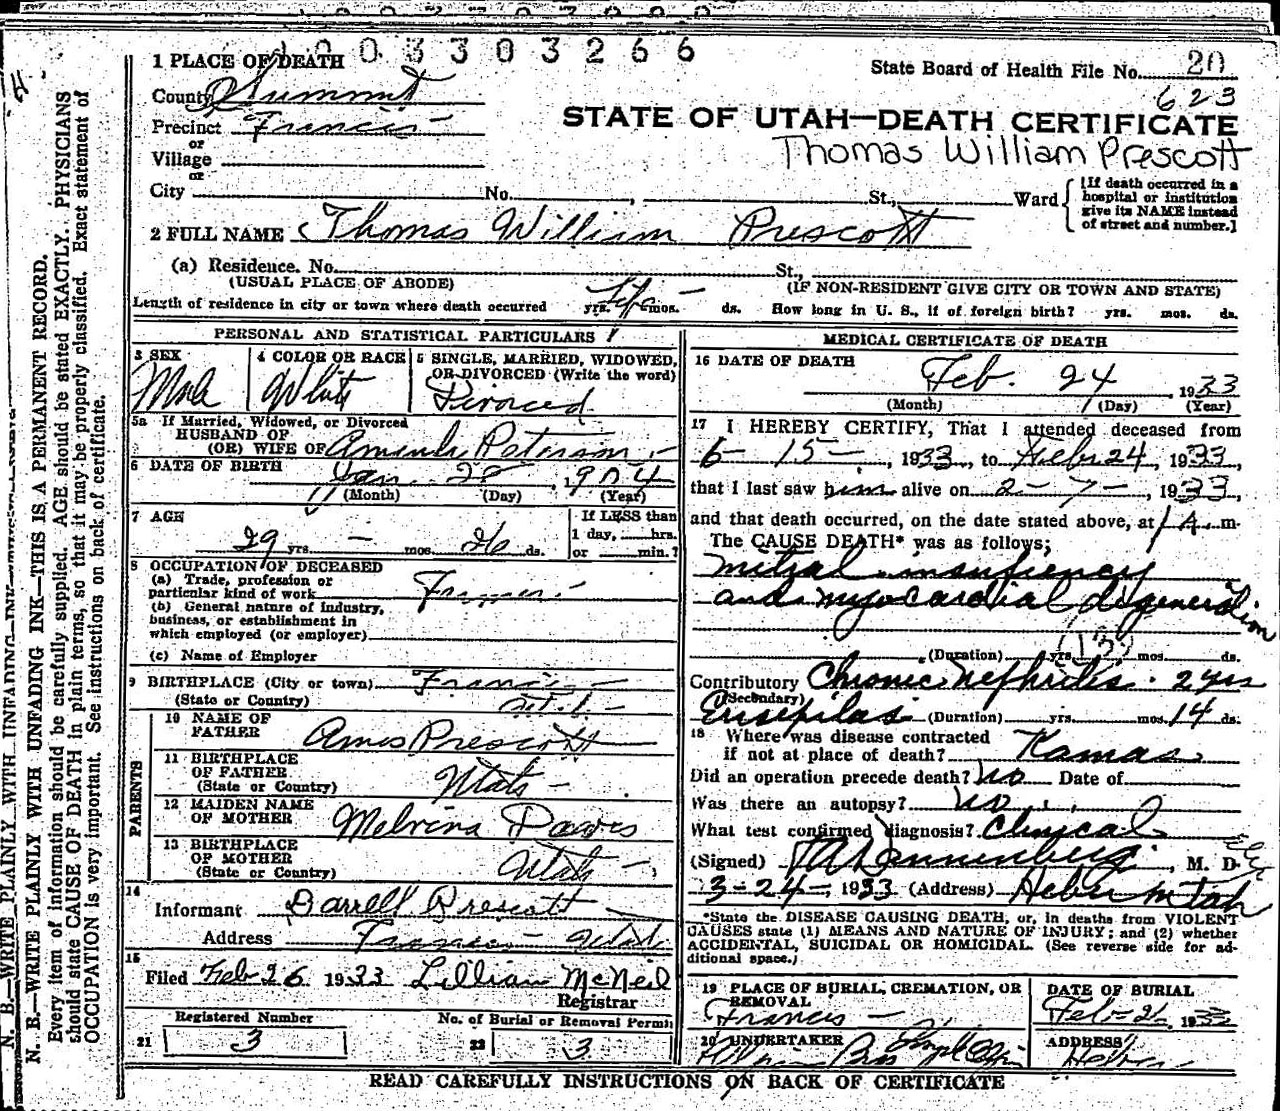 1003303266
1 PLACE OF DEATH
State Board of Health File No. 20
623
County Summit
Precinct Francis
or
Village
or
City No. , St., Ward
STATE OF UTAH—DEATH CERTIFICATE
Thomas William Prescott
[If death occurred in a
hospital or institution
give its NAME instead
of street and number.]
2 FULL NAME Thomas William Prescott
(a) Residence. No. St.,
(USUAL PLACE OF ABODE) (IF NON-RESIDENT GIVE CITY OR TOWN AND STATE)
Length of residence in city or town where death occurred Life yrs. mos. ds. How long in U. S., if of foreign birth? yrs. mos. ds.
PERSONAL AND STATISTICAL PARTICULARS
3 SEX 4 COLOR OR RACE 5 SINGLE, MARRIED, WIDOWED,
OR DIVORCED (Write the word)
Male White Divorced
5a If Married, Widowed, or Divorced
HUSBAND OF
(OR) WIFE OF Amanda Peterson
6 DATE OF BIRTH Jan. 28, 1904
(Month) (Day) (Year)
7 AGE If LESS than
1 day, hrs.
29 yrs. — mos. 26 ds. or min.?
8 OCCUPATION OF DECEASED
(a) Trade, profession or
particular kind of work Farmer
(b) General nature of industry,
business, or establishment in
which employed (or employer)
(c) Name of Employer
9 BIRTHPLACE (City or town) Francis
(State or Country) Utah
PARENTS
10 NAME OF
FATHER Amos Prescott
11 BIRTHPLACE
OF FATHER
(State or Country) Utah
12 MAIDEN NAME
OF MOTHER Melvina Daves
13 BIRTHPLACE
OF MOTHER
(State or Country) Utah
14
Informant Darrell Prescott
Address Francis Utah
15
Filed Feb 26 1933 Lillian McNeil
Registrar
Registered Number No. of Burial or Removal Permit
21 3 22 3
MEDICAL CERTIFICATE OF DEATH
16 DATE OF DEATH
Feb. 24, 1933
(Month) (Day) (Year)
17 I HEREBY CERTIFY, That I attended deceased from
6-15-, 1933, to Feb 24, 1933,
that I last saw him alive on 2-7-, 1933,
and that death occurred, on the date stated above, at 1 A. m.
The CAUSE DEATH* was as follows:
mitral insufiency
and myocardial degeneration
(Duration) yrs. mos. ds.
Contributory Chronic Nephritis. 2 yrs
(Secondary)
Erisipilas (Duration) yrs. mos. 14 ds.
18 Where was disease contracted
if not at place of death? Kamas
Did an operation precede death? no Date of
Was there an autopsy? no
What test confirmed diagnosis? Clinical
(Signed) Dannenberg, M. D.
3-24-, 1933 (Address) Heber Utah
*State the DISEASE CAUSING DEATH, or, in deaths from VIOLENT
CAUSES state (1) MEANS AND NATURE OF INJURY; and (2) whether
ACCIDENTAL, SUICIDAL OR HOMICIDAL. (See reverse side for ad-
ditional space.)
19 PLACE OF BURIAL, CREMATION, OR
REMOVAL
Francis
DATE OF BURIAL
Feb 26, 1933
20 UNDERTAKER
Bros
ADDRESS
Heber
READ CAREFULLY INSTRUCTIONS ON BACK OF CERTIFICATE
N. B.—WRITE PLAINLY WITH UNFADING INK—THIS IS A PERMANENT RECORD.
Every item of information should be carefully supplied. AGE should be stated EXACTLY. PHYSICIANS
should state CAUSE OF DEATH in plain terms, so that it may be properly classified. Exact statement of
OCCUPATION is very important. See instructions on back of certificate.